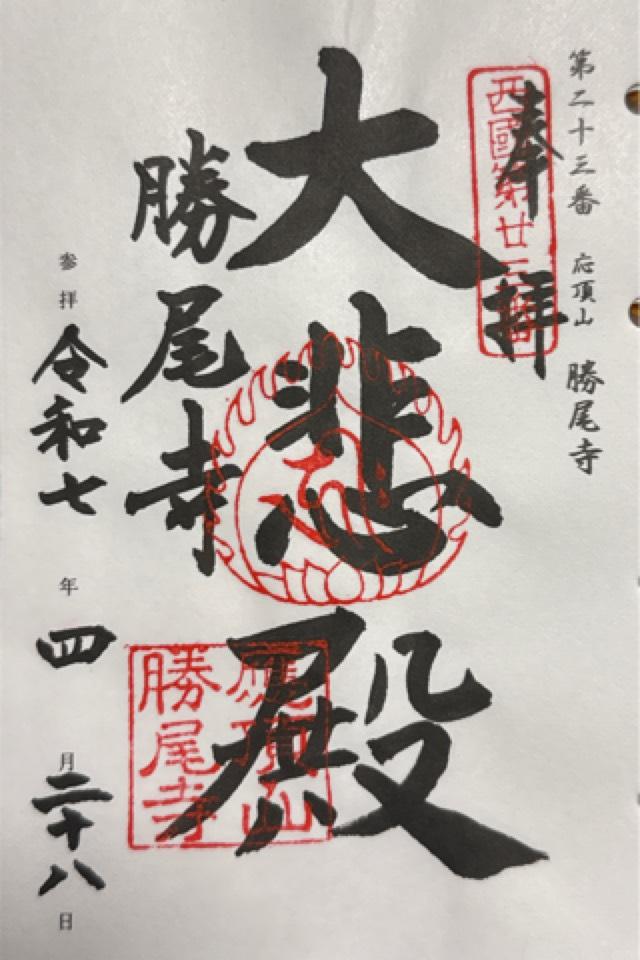 第二十三番 応頂山 勝尾寺
奉拝
西國第廿三番
大悲殿
勝尾寺
應頂山
勝尾寺
参拝 令和七年四月二十八日